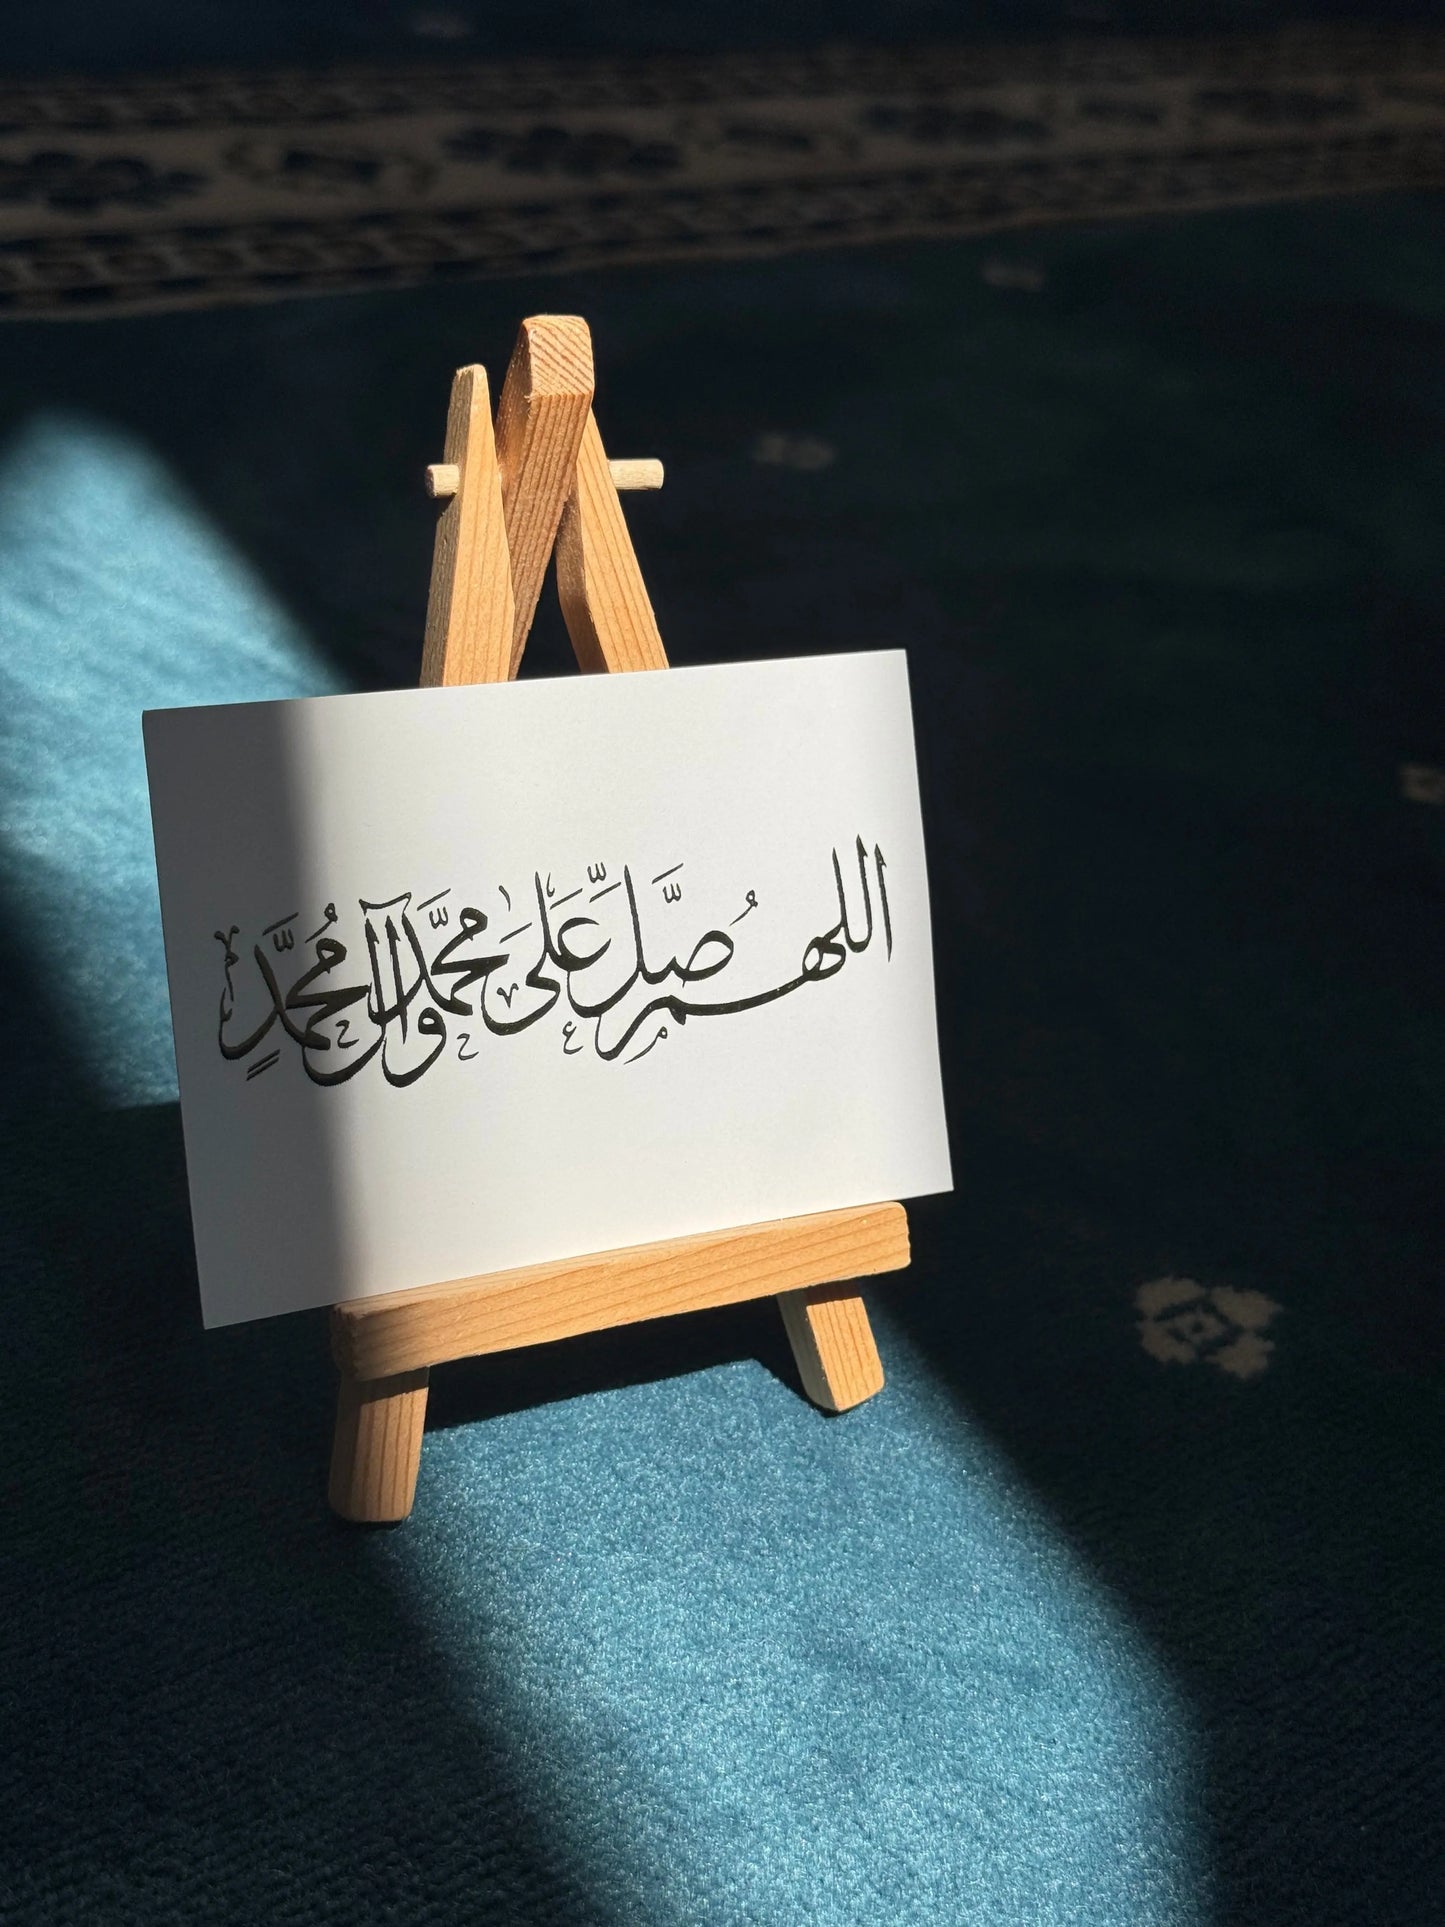 اللهم صَلِّ عَلَى مُحَمَّدٍ وَآلِ مُحَمَّدٍ